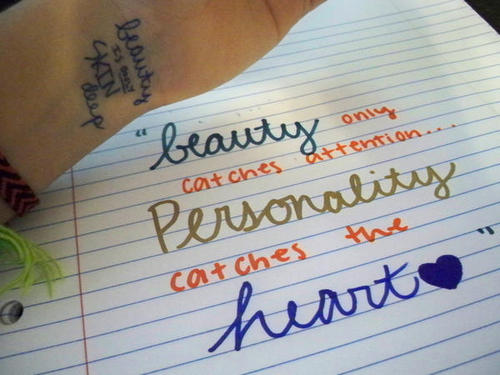 beauty
is only
SKIN
deep
"beauty only
catches attention...
Personality
catches the
heart"